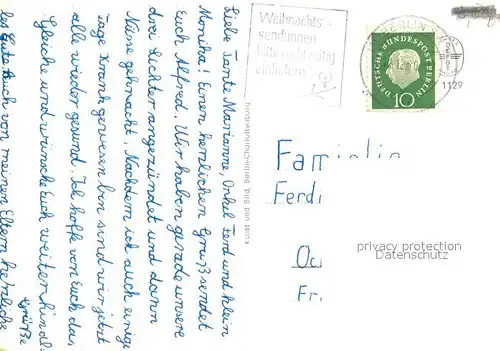 Liebe Tante Marianne, Onkel Ferd und klein
Monika! Einen herzlichen Gruß sendet
Euch Alfred. Wir haben gerade unsere
drei Lichter angezündet und dann
Nüsse geknackt. Nachdem ich auch einige
Tage krank gewesen bin sind wir jetzt
alle wieder gesund. Ich hoffe von Euch das
Gleiche und wünsche Euch weiterhin al-
les Gute Auch von meinen Eltern herzliche
Grüße
Kunst und Bild, Berlin-Charlottenburg
Weihnachts-
sendungen
bitte rechtzeitig
einliefern
DEUTSCHE BUNDESPOST BERLIN
10
1129
Familie
Ferd
Oc
Fr.
privacy protection
Datenschutz